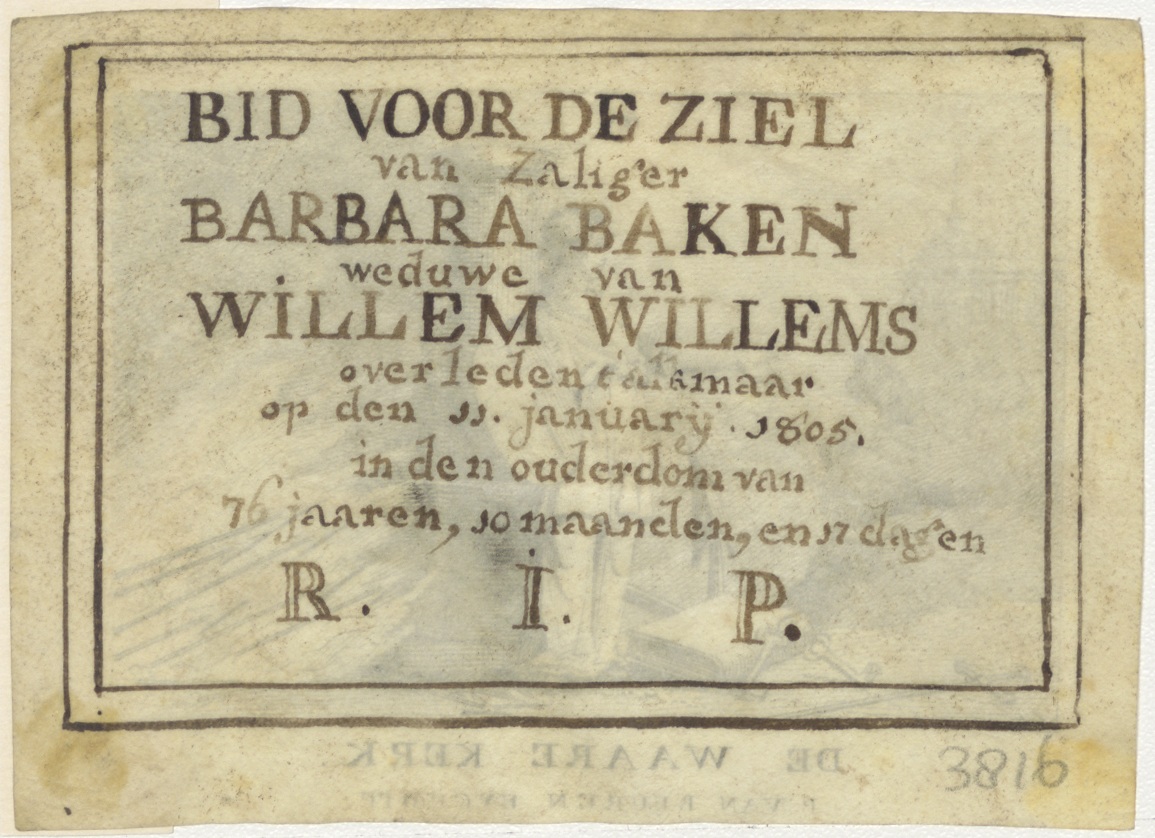 BID VOOR DE ZIEL
van Zaliger
BARBARA BAKEN
weduwe van
WILLEM WILLEMS
overleden t'alkmaar
op den 11. januarÿ. 1805.
in den ouderdom van
76 jaaren, 10 maanden, en 17 dagen
R. I. P.
DE WAARE KERK
3816